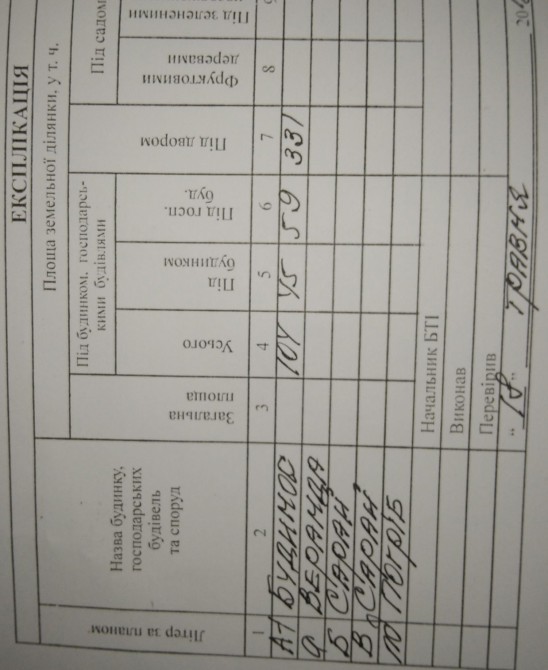 ЕКСПЛІКАЦІЯ
Літер за планом
Назва будинку, господарських будівель та споруд
Площа земельної ділянки, у т. ч.
Загальна площа
Під будинком, господарсь-
кими будівлями
Усього
Під будинком
Під госп. буд.
Під двором
Під садом
Фруктовими деревами
Під зеленими
1 2 3 4 5 6 7 8
А1 БУДИНОК 104 45 59 331
а ВЕРАНДА
Б САРАЙ
В САРАЙ
ПОГРІБ
Начальник БТІ
Виконав
Перевірив
„18" травня 20